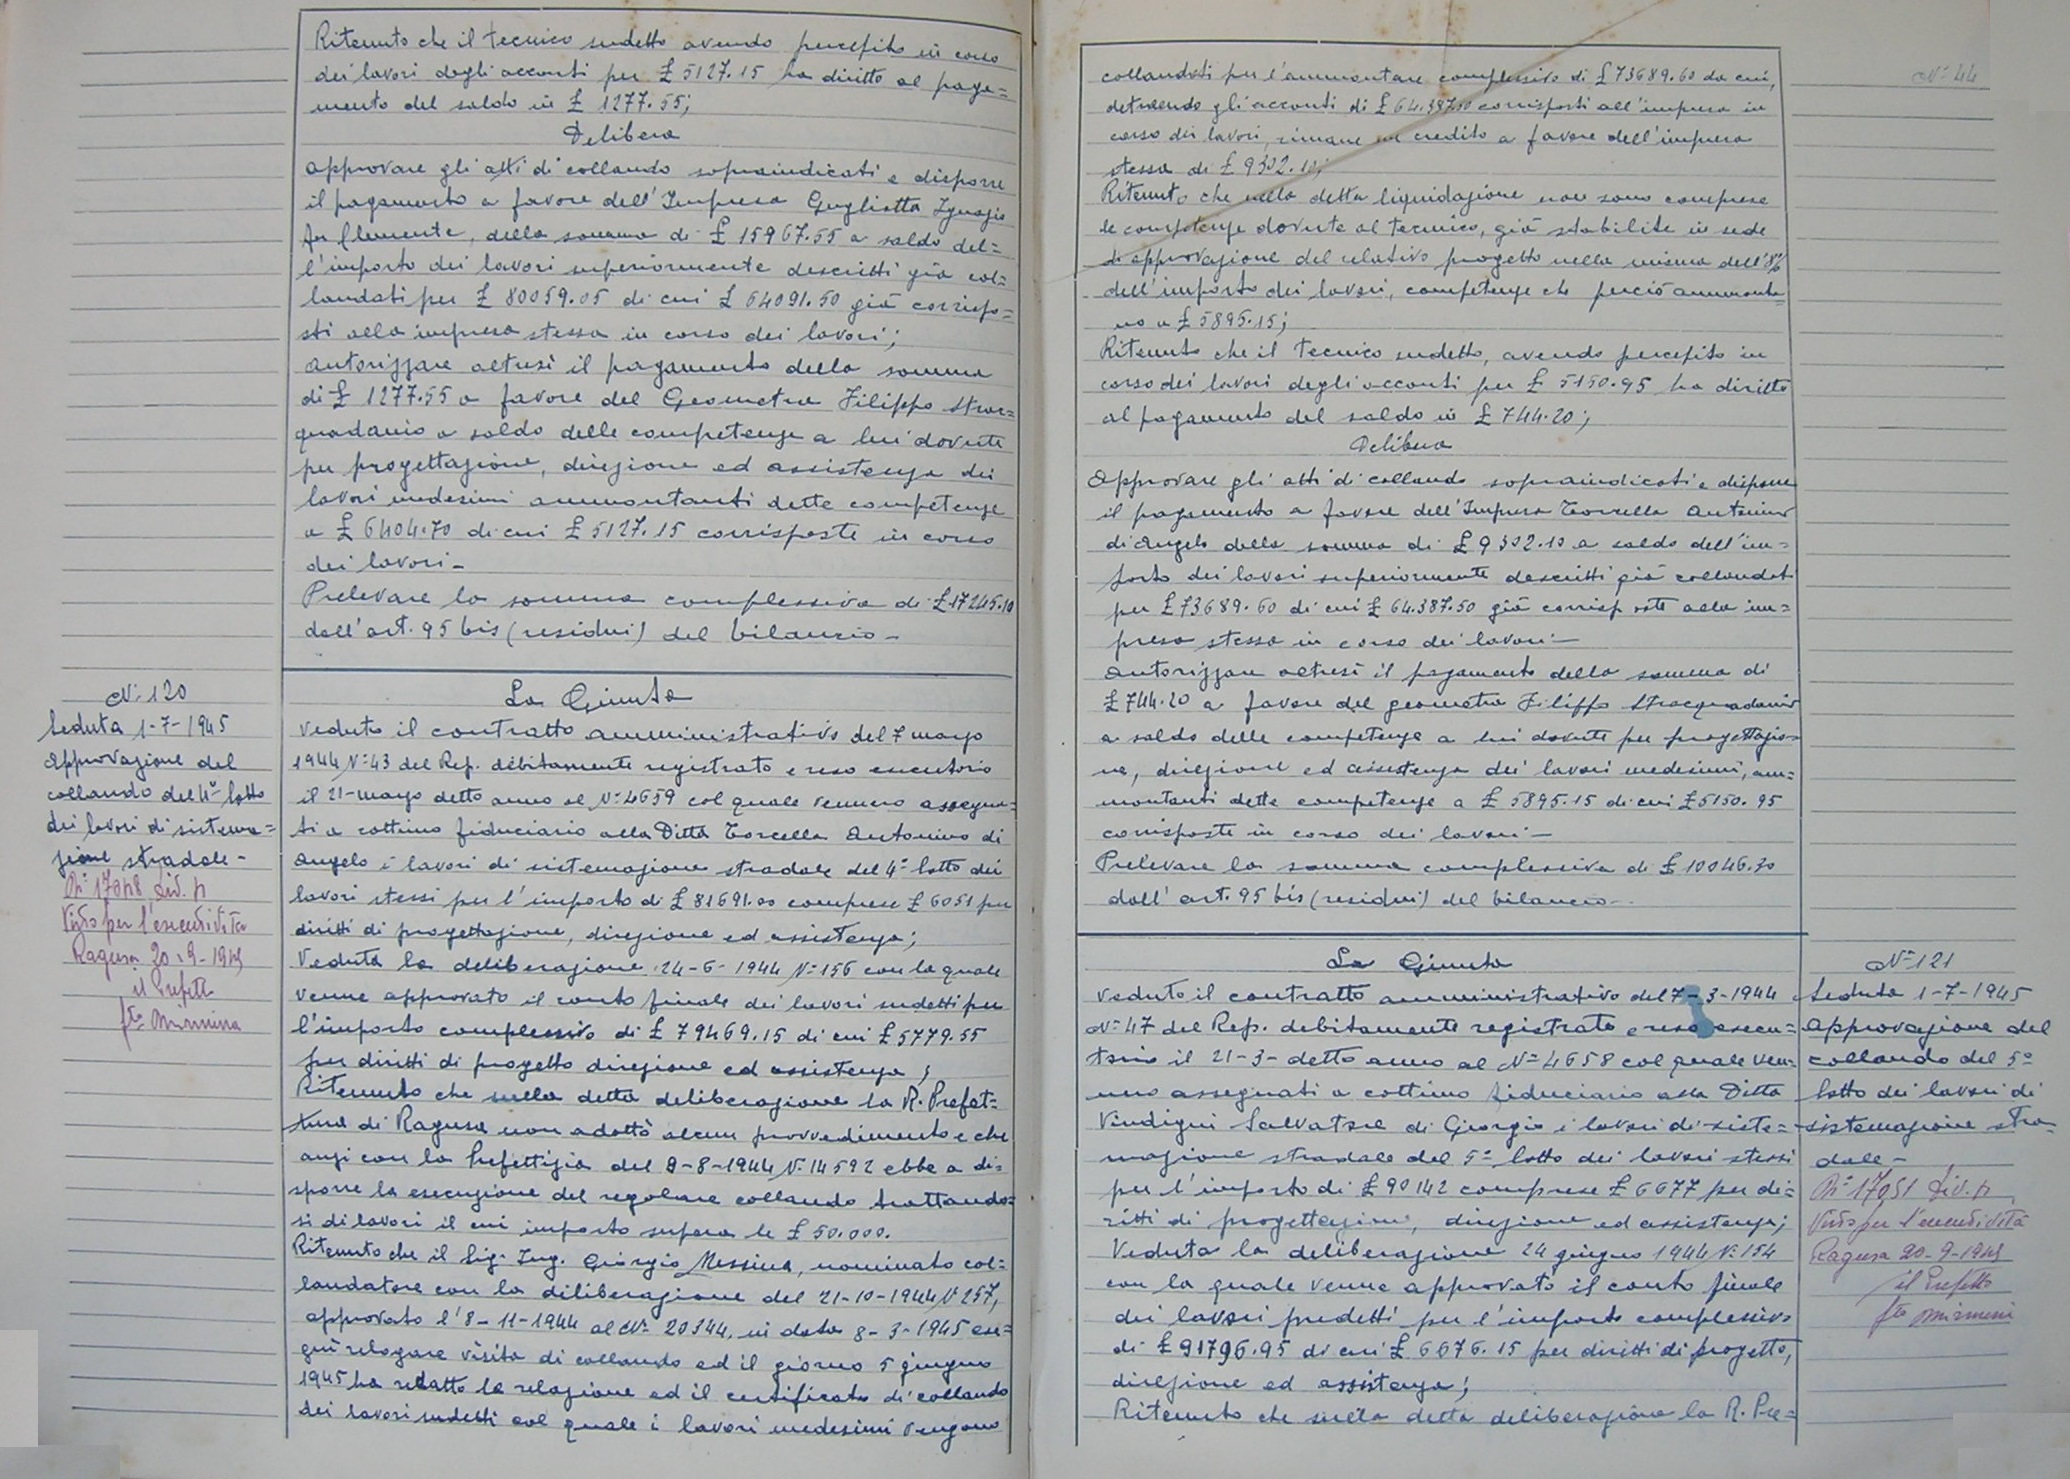 Ritenuto che il tecnico sudetto avendo percepito in corso
dei lavori degli acconti per £ 5127.15 ha diritto al paga=
mento del saldo in £ 1277.55;
Delibera
approvare gli atti di collaudo sopraindicati e disporre
il pagamento a favore dell'Impresa Gugliotta Ignazio
fu Clemente, della somma di £ 15967.55 a saldo del=
l'importo dei lavori superiormente descritti già col=
laudati per £ 80059.05 di cui £ 64091.50 già corrispo=
sti alla impresa stessa in corso dei lavori;
autorizzare altresì il pagamento della somma
di £ 1277.55 a favore del Geometra Filippo Strac=
quadanio a saldo delle competenze a lui dovute
per progettazione, direzione ed assistenza dei
lavori medesimi ammontanti dette competenze
a £ 6404.70 di cui £ 5127.15 corrisposte in corso
dei lavori-
Prelevare la somma complessiva di £ 17245.10
dall'art. 95 bis (residui) del bilancio-
N° 120
Seduta 1-7-1945
Approvazione del
collaudo del 4° lotto
dei lavori di sistema=
zione stradale-
Div. II
Visto per l'esecutività
Ragusa 20-9-1945
il Prefetto
La Giunta
Veduto il contratto amministrativo del 7 marzo
1944 N° 43 del Rep. debitamente registrato e reso esecutorio
il 21-marzo detto anno al N° 4659 col quale vennero assegna=
ti a cottimo fiduciario alla Ditta Torcella Antonino di
Angelo i lavori di sistemazione stradale del 4° lotto dei
lavori stessi per l'importo di £ 81691.00 comprese £ 6051 per
diritti di progettazione, direzione ed assistenza;
Veduta la deliberazione 24-6-1944 N° 156 con la quale
venne approvato il conto finale dei lavori sudetti per
l'importo complessivo di £ 79469.15 di cui £ 5779.55
per diritti di progetto direzione ed assistenza;
Ritenuto che sulla detta deliberazione la R. Prefet=
tura di Ragusa non adottò alcun provvedimento e che
anzi con la Prefettizia del 9-8-1944 N. 14592 ebbe a di=
sporre la esecuzione del regolare collaudo trattando=
si di lavori il cui importo supera le £ 50.000.
Ritenuto che il Sig. Ing. Giorgio Messina, nominato col=
laudatore con la diliberazione del 21-10-1944 N° 257,
approvato l'8-11-1944 al N° 20344, in data 8-3-1945 ese=
guì relogare visita di collaudo ed il giorno 5 giugno
1945 ha redatto la relazione ed il certificato di collaudo
dei lavori sudetti col quale i lavori medesimi vengono
N° 44
collaudati per l'ammontare complessivo di £ 73689.60 da cui,
detraendo gli acconti di £ 64.387.50 corrisposti all'impresa in
corso dei lavori, rimane un credito a favore dell'impresa
stessa di £ 9302.10;
Ritenuto che nella detta liquidazione non sono comprese
le competenze dovute al tecnico, già stabilite in sede
di approvazione del relativo progetto nella misura dell'8%
dell'importo dei lavori, competenze che perciò ammonta=
no a £ 5895.15;
Ritenuto che il tecnico sudetto, avendo percepito in
corso dei lavori degli acconti per £ 5150.95 ha diritto
al pagamento del saldo in £ 744.20;
Delibera
Approvare gli atti di collaudo sopraindicati e disporre
il pagamento a favore dell'Impresa Torcella Antonino
di Angelo della somma di £ 9302.10 a saldo dell'im=
porto dei lavori superiormente descritti già collaudati
per £ 73689.60 di cui £ 64.387.50 già corrisposte alla im=
presa stessa in corso dei lavori-
Autorizzare altresì il pagamento della somma di
£ 744.20 a favore del geometra Filippo Stracquadanio
a saldo delle competenze a lui dovute per progettazio=
ne, direzione ed assistenza dei lavori medesimi, am=
montanti dette competenze a £ 5895.15 di cui £ 5150.95
corrisposte in corso dei lavori-
Prelevare la somma complessiva di £ 10046.30
dall'art. 95 bis (residui) del bilancio-
La Giunta
Veduto il contratto amministrativo del 7-3-1944
N° 47 del Rep. debitamente registrato e reso esecu=
torio il 21-3-detto anno al N° 4658 col quale ven=
nero assegnati a cottimo fiduciario alla Ditta
Vindigni Salvatore di Giorgio i lavori di siste=
mazione stradale del 5° lotto dei lavori stessi
per l'importo di £ 90142 comprese £ 6677 per di=
ritti di progettazione, direzione ed assistenza;
Veduta la deliberazione 24 giugno 1944 N. 154
con la quale venne approvato il conto finale
dei lavori predetti per l'importo complessivo
di £ 91796.95 di cui £ 6676.15 per diritti di progetto,
direzione ed assistenza;
Ritenuto che sulla detta deliberazione la R. Pre=
N° 121
Seduta 1-7-1945
Approvazione del
collaudo del 5°
lotto dei lavori di
sistemazione stra=
dale-
N° 17051 Div. II
Visto per l'esecutività
Ragusa 20-9-1945
il Prefetto